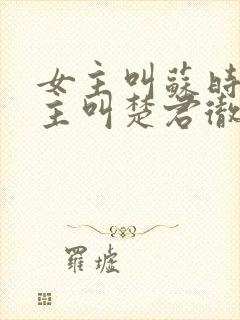 女主叫蘇時
主叫楚君徹
羅墟